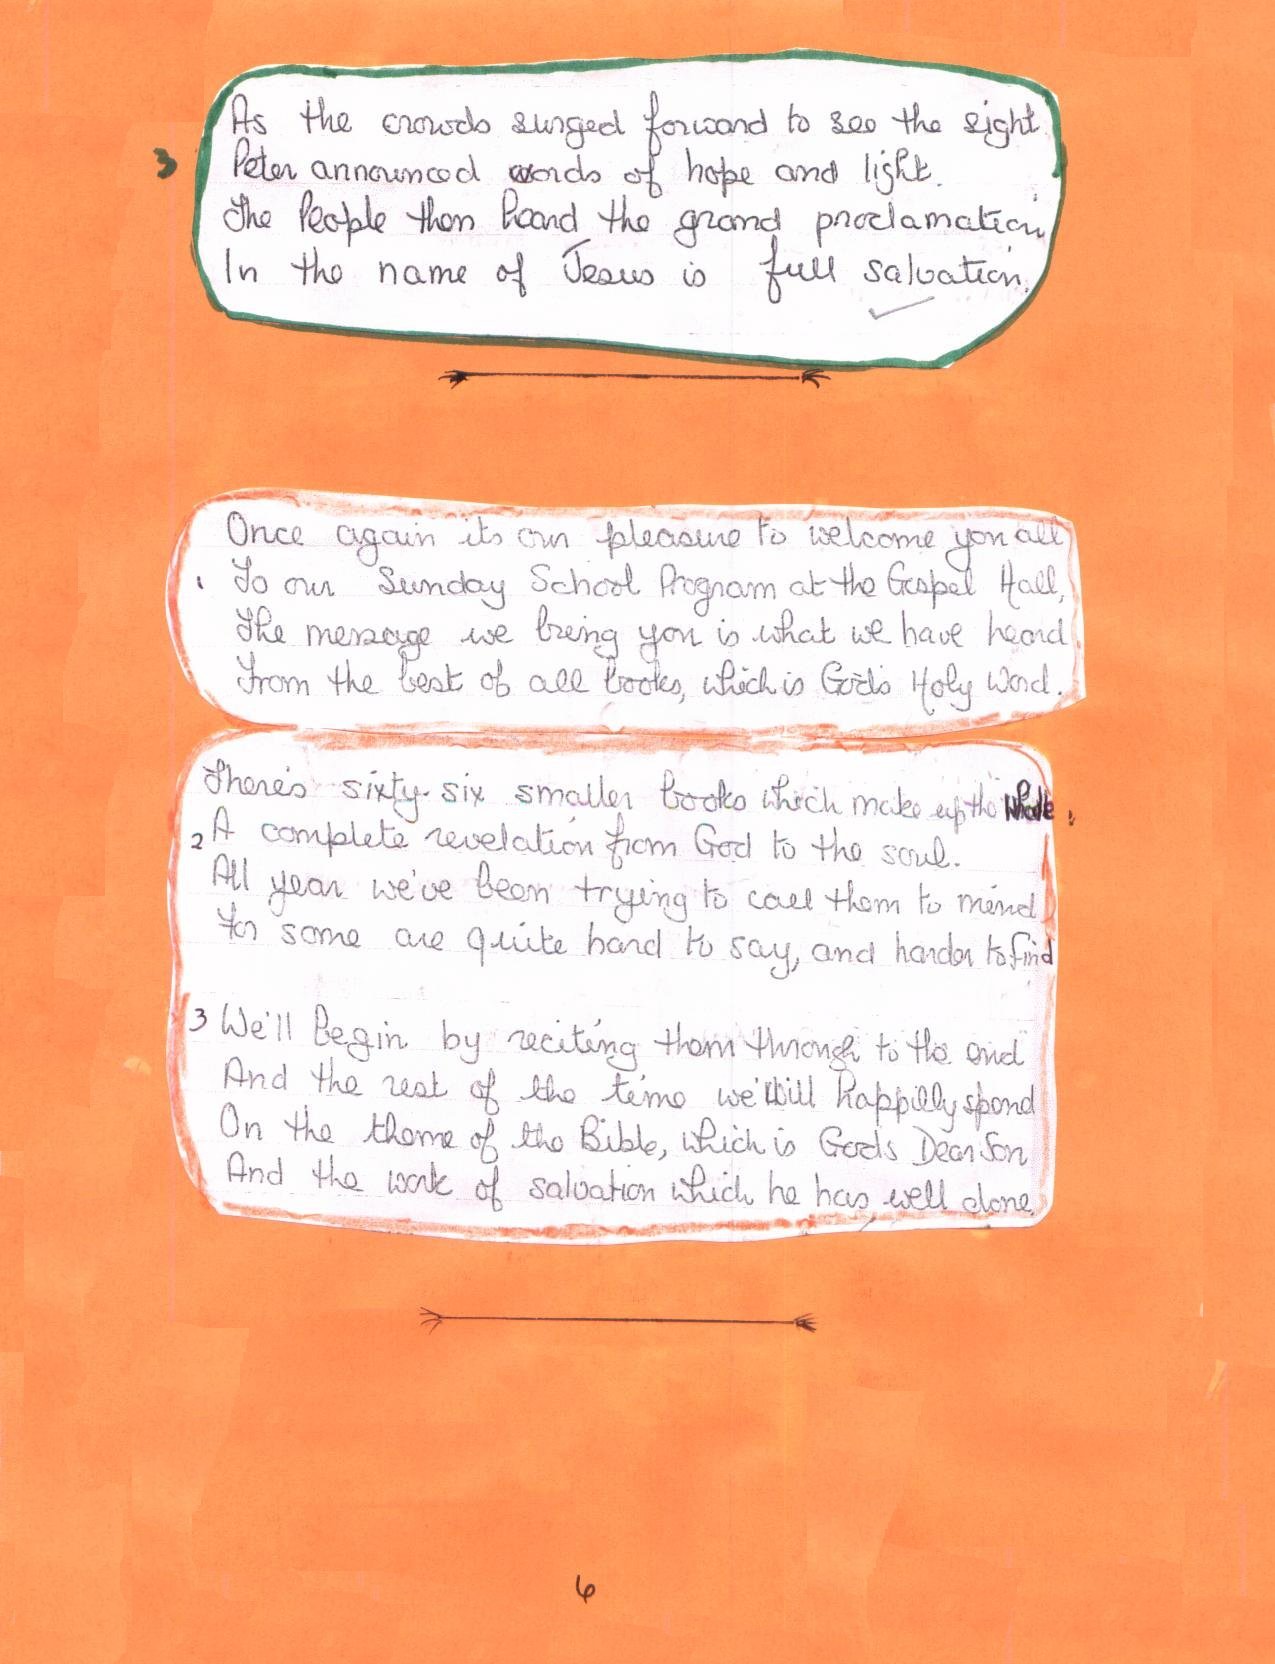 3
As the crowds surged forward to see the sight
Peter announced words of hope and light.
The People then heard the grand proclamation
In the name of Jesus is full salvation.
1
Once again its our pleasure to welcome you all
To our Sunday School Program at the Gospel Hall,
The message we bring you is what we have heard
From the best of all books, which is God's Holy Word.
There's sixty-six smaller books which make up the Whole.
2 A complete revelation from God to the soul.
All year we've been trying to call them to mind
For some are quite hard to say, and harder to find
3 We'll begin by reciting them through to the end
And the rest of the time we'll will happily spend
On the theme of the Bible, which is Gods Dear Son
And the work of salvation which he has well done.
6